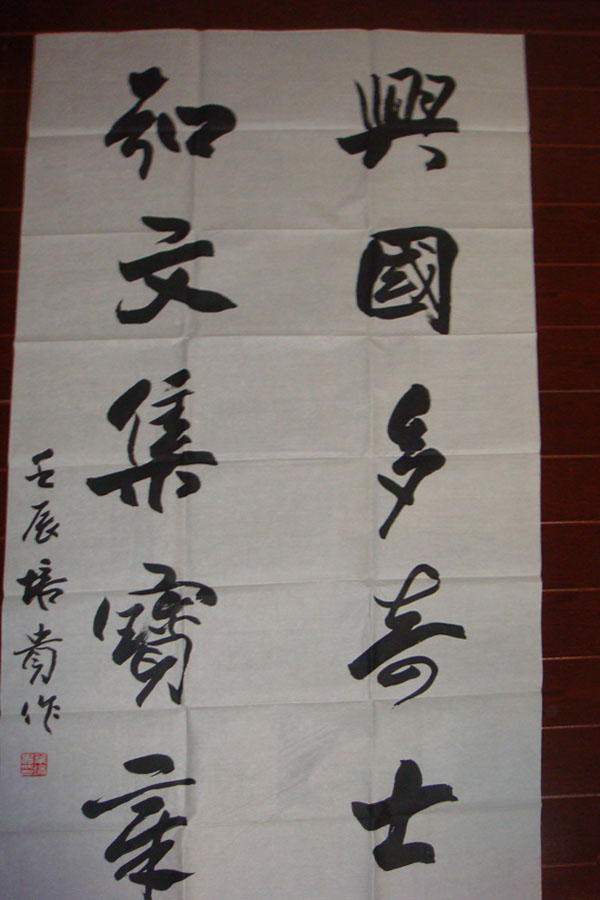 興國多奇士
知文集寶章
壬辰培贵作